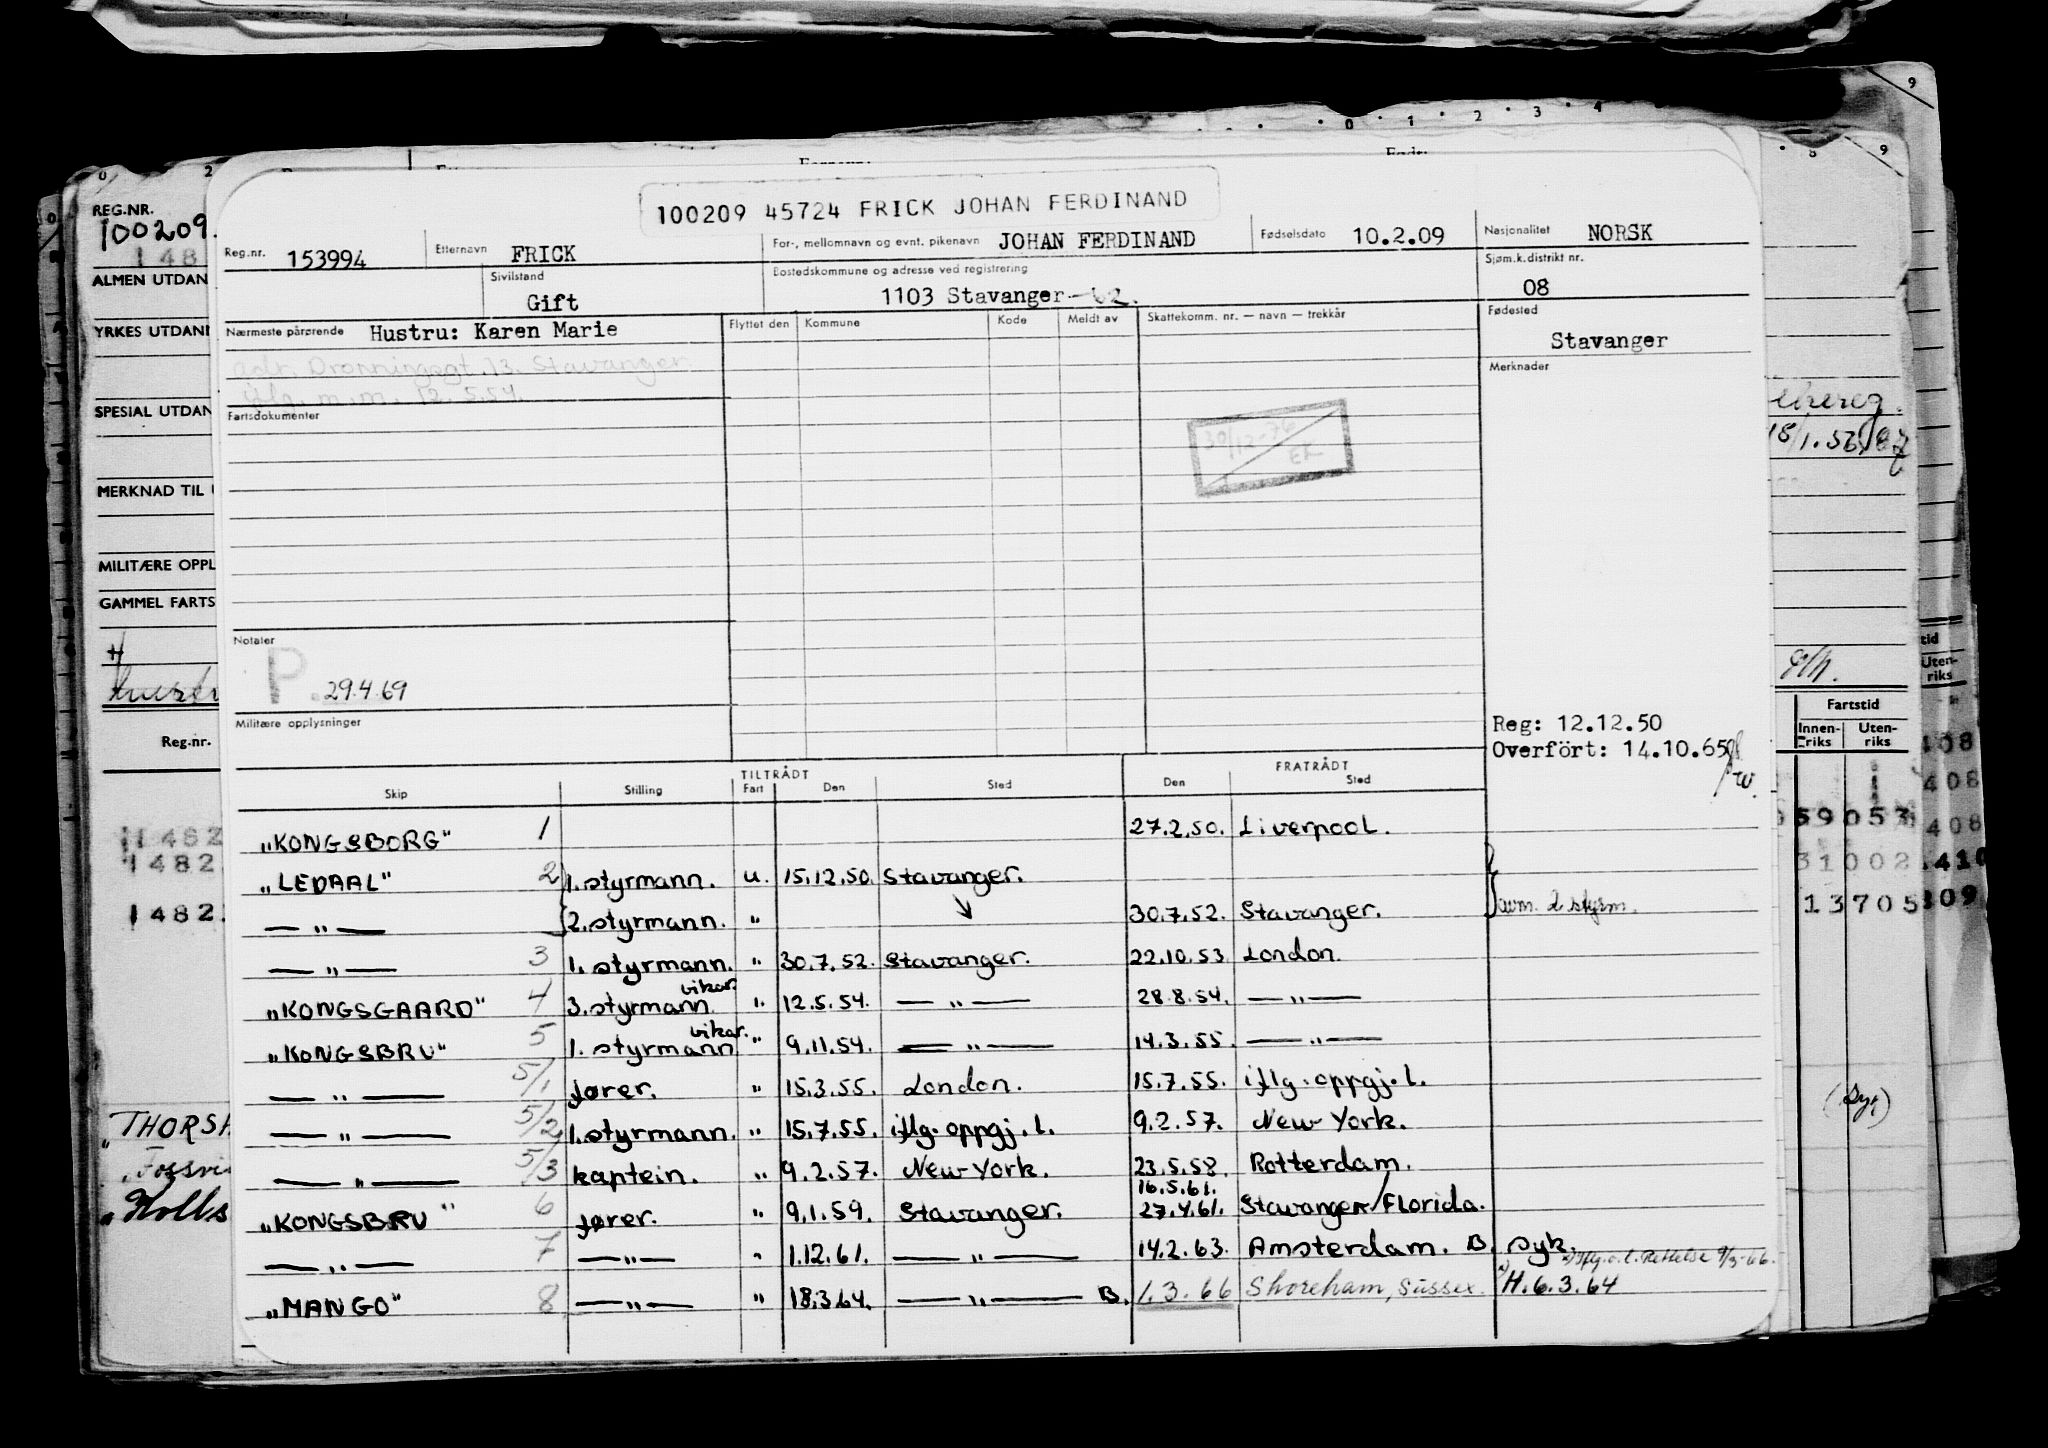 9
0 1 2 3 4
8 9
0 2
REG.NR.
100209.
1 48
ALMEN UTDAN
YRKES UTDAN
SPESIAL UTDAN
MERKNAD TIL
MILITÆRE OPPL
GAMMEL FARTS
Reg.nr.
1 482
1 482
1 482
THORSH
100209 45724 FRICK JOHAN FERDINAND
Reg.nr. 153994 Etternavn FRICK For-, mellomnavn og evnt. pikenavn JOHAN FERDINAND Fødselsdato 10.2.09 Nasjonalitet NORSK
Sivilstand Gift Bostedskommune og adresse ved registrering 1103 Stavanger-62. Sjøm.k.distrikt nr. 08
Nærmeste pårørende Hustru: Karen Marie Flyttet den Kommune Kode Meldt av Skattekomm. nr. — navn — trekkår Fødested Stavanger
adr. Dronningsgt. 13. Stavanger.
iflg. m.m. 12.5.54.
Merknader
Fartsdokumenter
30/12-76
EK
Notater
P. 29.4.69
Militære opplysninger
Reg: 12.12.50
Overført: 14.10.65
TILTRÅDT FRATRÅDT
Skip Stilling Fart Den Sted Den Sted
„KONGSBORG" 1 27.2.50. Liverpool.
„LEDAAL" 2 1. styrmann. u. 15.12.50. Stavanger.
— " — 2. styrmann. " 30.7.52. Stavanger. avm. 2 styrm.
— " — 3 1. styrmann. " 30.7.52. Stavanger. 22.10.53 London.
„KONGSGAARD" 4 3. styrmann vikar. " 12.5.54. — " — 28.8.54. — " —
„KONGSBRU" 5 1. styrmann vikar. " 9.11.54. — " — 14.3.55. — " —
— " — 5/1 fører. " 15.3.55. London. 15.7.55. iflg. oppgj. l.
— " — 5/2 1. styrmann. " 15.7.55. iflg. oppgj. l. 9.2.57. New York.
— " — 5/3 kaptein. " 9.2.57. New York. 23.5.58. Rotterdam.
16.5.61.
„KONGSBRU" 6 fører. " 9.1.59. Stavanger. 27.4.61. Stavanger/Florida.
— " — 7 — " — " 1.12.61. — " — 14.2.63. Amsterdam. B. syk.
x) Iflg. o.l. Rettelse 9/3-66.
„MANGO" 8 — " — " 18.3.64. — " — B. 1.3.66 Shoreham, Sussex. x) H. 6.3.64
Fartstid
Innen-riks Uten-riks
59 053
31 002
13 705
408
408
408
410
409
(Syk)